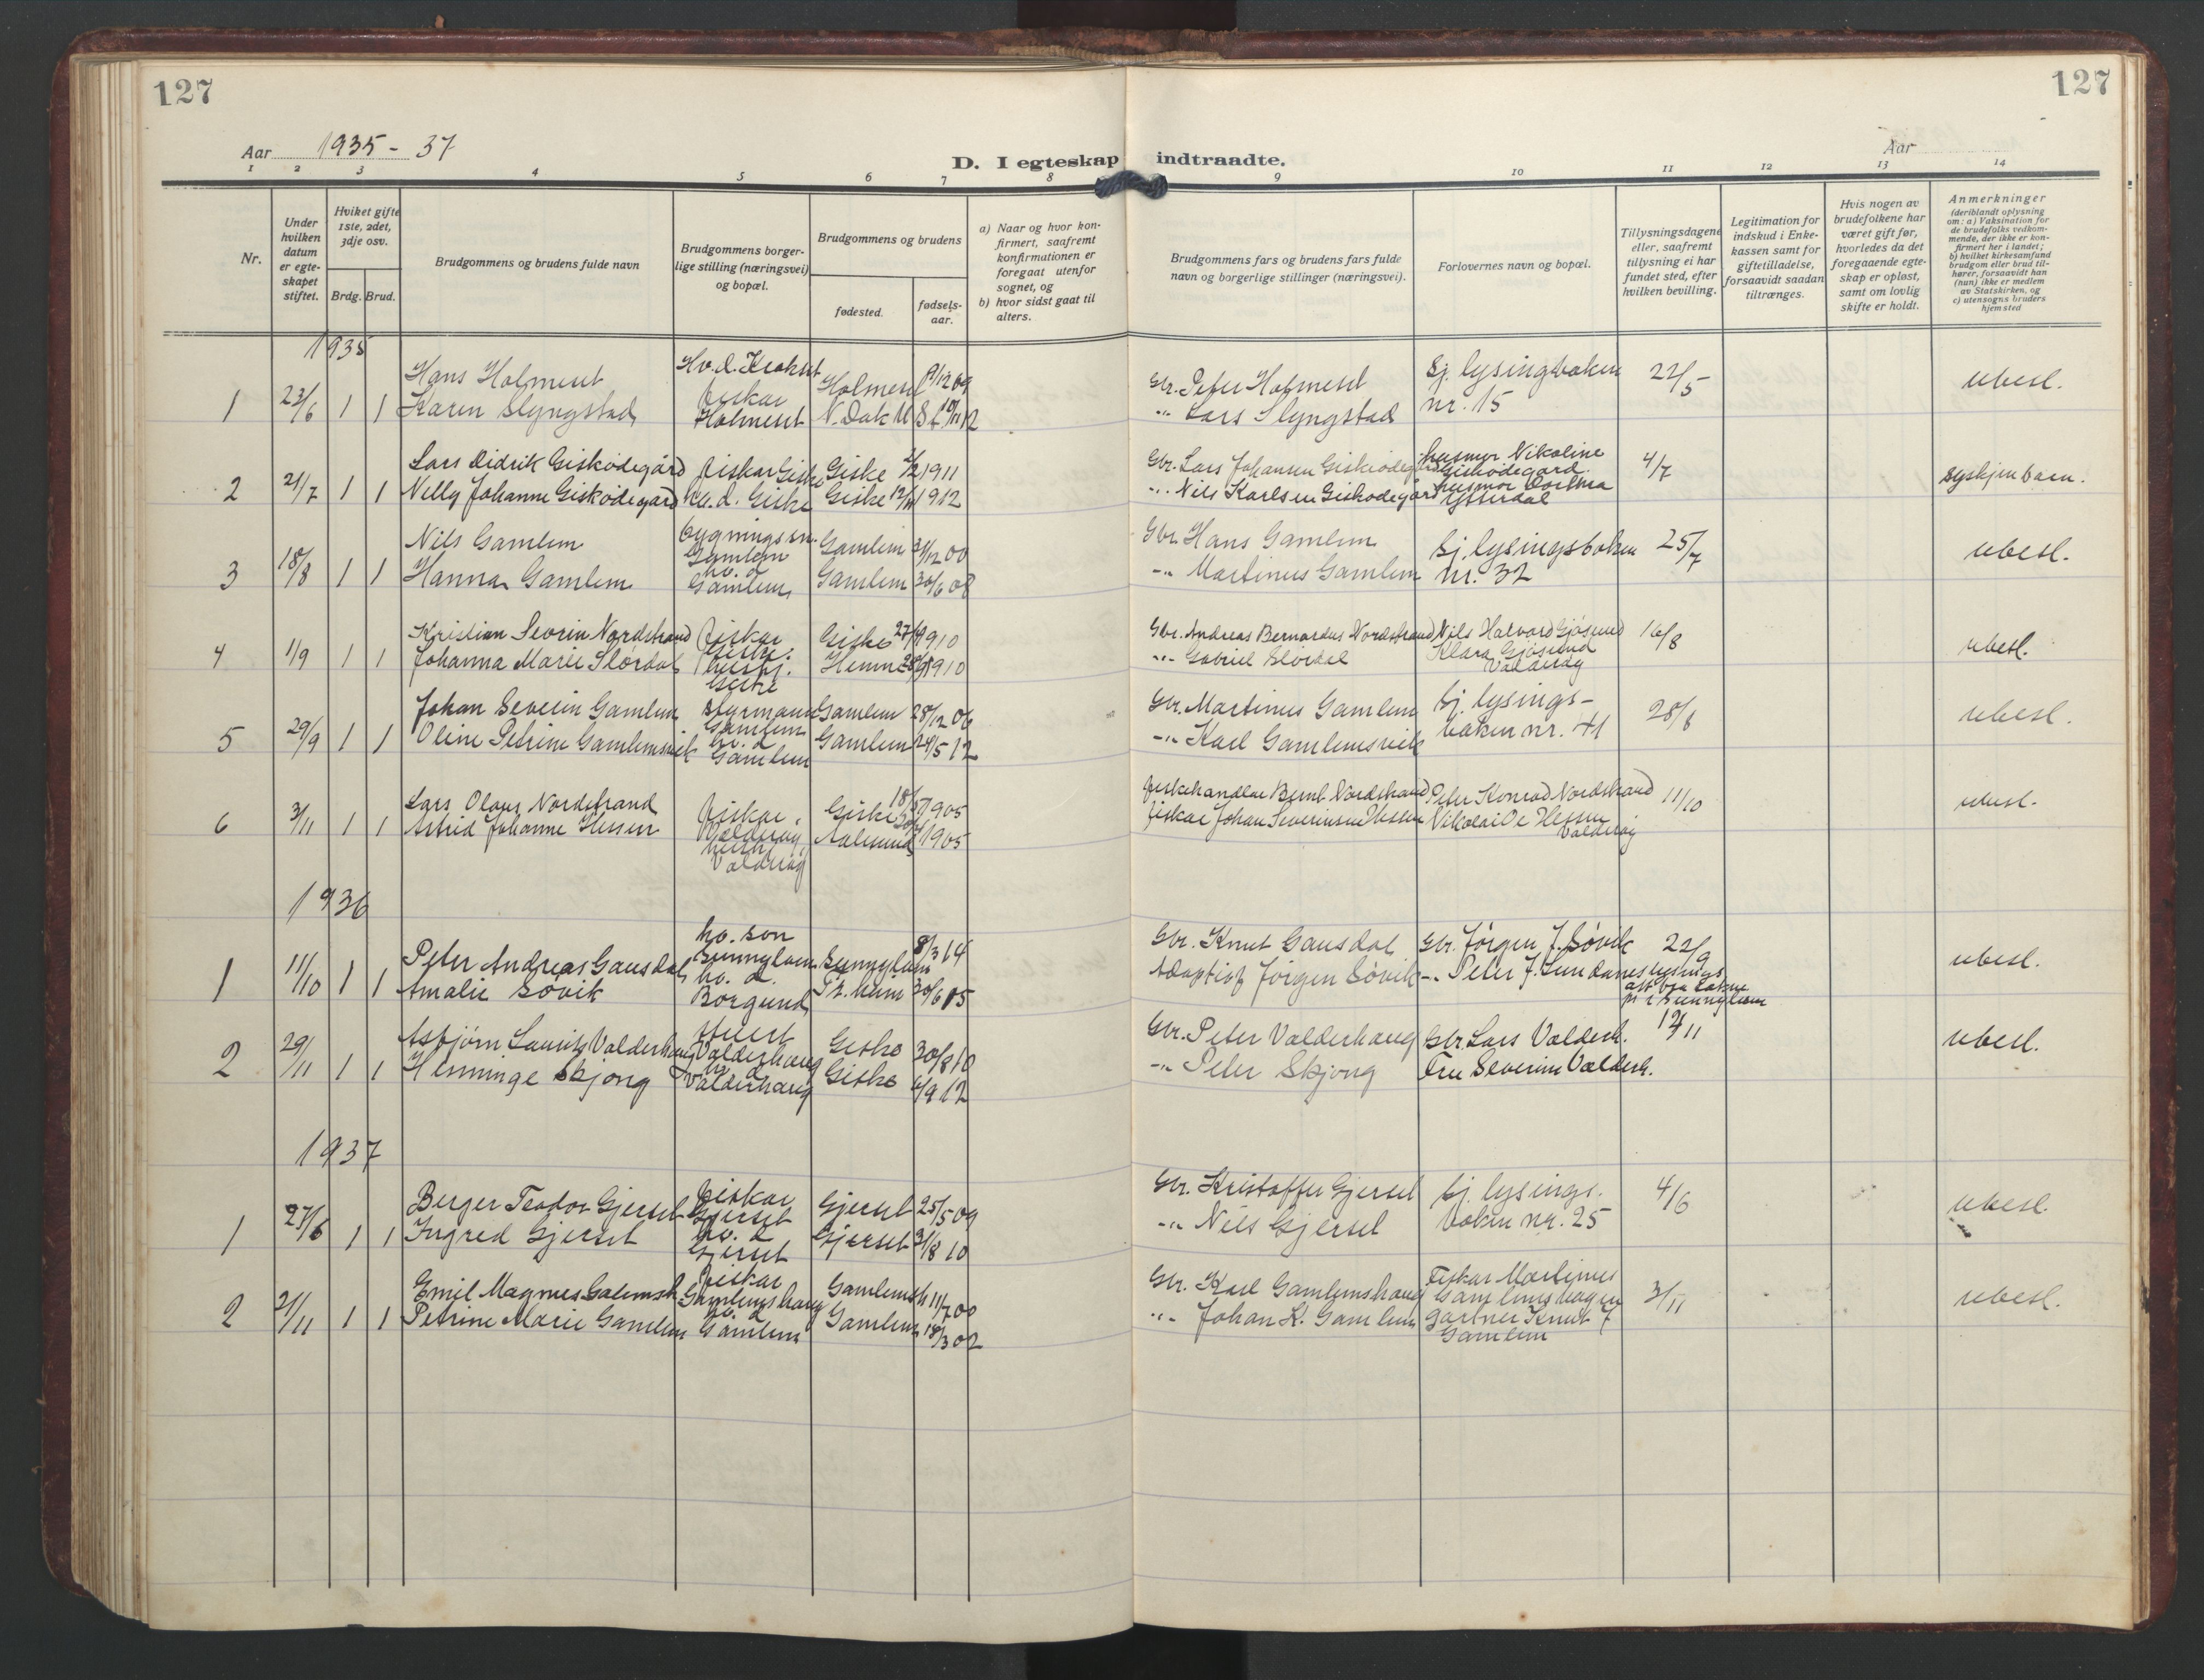 127
127
Aar 1935 - 37
D. I egteskap indtraadte.
Aar
1 2 3 4 5 6 7 8 9 10 11 12 13 14
Nr.
Under hvilken datum er egte-skapet stiftet.
Hviket gifte 1ste, 2det, 3dje osv.
Brdg. Brud.
Brudgommens og brudens fulde navn
Brudgommens borger-
lige stilling (næringsvei)
og bopæl.
Brudgommens og brudens
fødested.
fødsels-
aar.
a) Naar og hvor kon-
firmert, saafremt
konfirmationen er
foregaat utenfor
sognet, og
b) hvor sidst gaat til
alters.
Brudgommens fars og brudens fars fulde
navn og borgerlige stillinger (næringsvei).
Forlovernes navn og bopæl.
Tillysningsdagene
eller, saafremt
tillysning ei har
fundet sted, efter
hvilken bevilling.
Legitimation for
indskud i Enke-
kassen samt for
giftetilladelse,
forsaavidt saadan
tiltrænges.
Hvis nogen av
brudefolkene har
været gift før,
hvorledes da det
foregaaende egte-
skap er opløst,
samt om lovlig
skifte er holdt.
Anmerkninger
(deriblandt oplysning
om: a) Vaksination for
de brudefolks vedkom-
mende, der ikke er kon-
firmert her i landet;
b) hvilket kirkesamfund
brudgom eller brud til-
hører, forsaavidt han
(hun) ikke er medlem
av Statskirken, og
c) utensogns bruders
hjemsted
1935
1 23/6 1 1
Hans Holmeset
Karen Slyngstad
Fiskar
Holmeset
Holmeset
N. Dak U S
Gbr. Peter Holmeset
-"- Lars Slyngstad
Sj. lysingboken
nr. 15
22/5
ubesl.
2 21/7 1 1
Lars Didrik Giskødegård
Nelly Johanne Giskødegård
Fiskar Giske
hu.d. Giske
Giske 1911
Giske 12/11 1912
Gbr. Lars Johansen Giskeødegård
-"- Nils Karlsen Giskødegård
husmor Nikoline
Giskødegård.
husmor Dorthea
Ytterdal
4/7
syskjenbarn.
3 18/8 1 1
Nils Gamlem
Hanna Gamlem
bygningssn.
Gamlem
hv. d
Gamlem
Gamlem 31/12 00
Gamlem 30/6 08
Gbr. Hans Gamlem
-"- Martinus Gamlem
Sj. lysingsboken
nr. 32
25/7
ubesl.
4 1/9 1 1
Kristian Severin Nordstrand
Johanna Marie Slørdal
Fiskar
Giske.
hushj.
Giske
Giske 1910
Hemne 1910
Gbr. Andreas Bernardus Nordstrand
-"- Gabriel Slørdal
Nils Halvard Gjøsund
Klara Gjøsund
Valderøy
16/8
ubesl.
5 29/9 1 1
Johan Severin Gamlem
Oline Petrine Gamlemsvik
styrmann
Gamlem
hv. d
Gamlem
Gamlem 28/12 06
Gamlem 24/5 12
Gbr. Martinus Gamlem
-"- Karl Gamlemsvik
Sj. lysings-
boken nr. 41
28/8
ubesl.
6 3/11 1 1
Lars Olaus Nordstrand
Astrid Johanne Hessen
Fiskar.
Valderøy,
hush.
Valderøy
Giske 1905
Aalesund 1905
Fiskehandlar Bernt Nordstrand
Fiskar Johan Severinsen Hessen
Peter Konrad Nordstrand
Nikolai O. Hessen
Valderøy
11/10
ubesl.
1936
1 11/10 1 1
Peter Andreas Gausdal
Amalie Søvik
hv. son
Sunnylven
hv. d.
Borgund
Sunnylven 8/3 14
Tr.heim 30/6 05
Gbr. Knut Gausdal
Adoptivf Jørgen Søvik
Gbr. Jørgen J. Søvik
-"- Peter J. Sundanes
22/9
ubesl.
2 29/11 1 1
Asbjørn Laurits Valderhaug
Hemminge Skjong
Valderhaug
hv. d
Valderhaug
Giske 30/8 10
Giske 6/9 12
Gbr. Peter Valderhaug
-"- Peter Skjong
Gbr. Lars Valderh.
Fru Severine Valderh.
12/11
ubesl.
1937
1 27/6 1 1
Berger Teodor Gjerset
Ingrid Gjerset
Fiskar
Gjerset
hv. d
Gjerset
Gjerset 25/5 09
Gjerset 31/8 10
Gbr. Kristoffer Gjerset
-"- Nils Gjerset
Sj. lysings.
boken nr. 25
4/6
ubesl.
2 21/11 1 1
Emil Magnus Galemsh
Petrine Marie Gamlem
Fiskar
Gamlemshaug
hv. d
Gamlem
Gamlemsh 11/7 00
Gamlem 18/3 02
Gbr. Karl Gamlemshaug
"- Johan K. Gamlem
Fiskar Martinus
Gamlemshagen
gartner Knut J
Gamlem
3/11
ubesl.